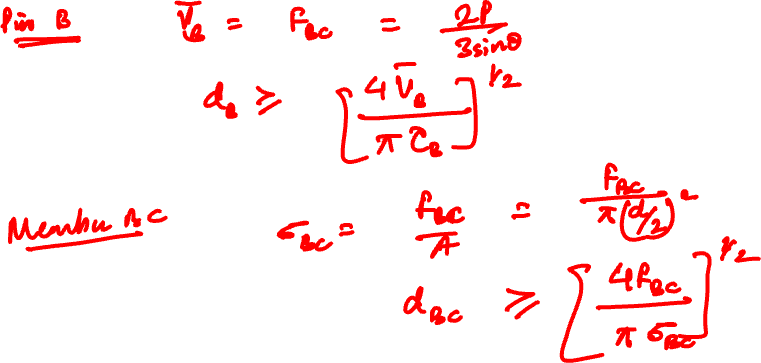 Pin B V̄_B = F_BC = 2P / 3sinθ
d_B ≥ [4V̄_B / π τ_B]^1/2
Member BC σ_BC = F_BC / A = F_BC / π(d/2)^2
d_BC ≥ [4F_BC / π σ_BC]^1/2